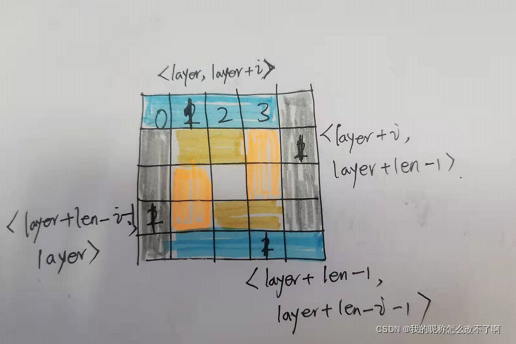 <layer, layer+i>
0 1 2 3
1
<layer+i,
layer+len-1>.
1
<layer+len-i-1
layer>
1
<layer+len-1,
layer+len-i-1>
CSDN @我的昵称怎么改不了啊